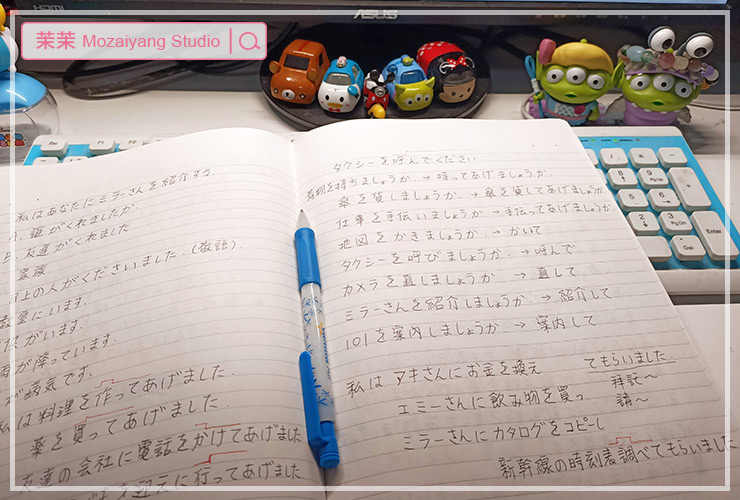 茉茉 Mozaiyang Studio
ASUS
HDMI
私はあなたにミラーさんを紹介する
A. 誰がくれましたか.
B. 友達がくれました.
目上の人がくださいました.(敬語).
教室にいます.
がいます.
雨が降っています.
が病気です.
私は料理を作ってあげました.
薬を買ってあげました.
友達の会社に電話をかけてあげました
迎えに行ってあげました.
タクシーを呼んでください
荷物を持ちましょうか. → 持ってあげましょうか.
傘を貸しましょうか. → 傘を貸してあげましょうか
仕事を手伝いましょうか → 手伝ってあげましょうか.
地図をかきましょうか. → かいて
タクシーを呼びましょうか. → 呼んで
カメラを直しましょうか → 直して
ミラーさんを紹介しましょうか → 紹介して
101を案内しましょうか → 案内して
私は アキさんにお金を換え てもらいました
エミーさんに飲み物を買っ 拜託~
請~
ミラーさんにカタログをコピーし
新幹線の時刻表調べてもらいました